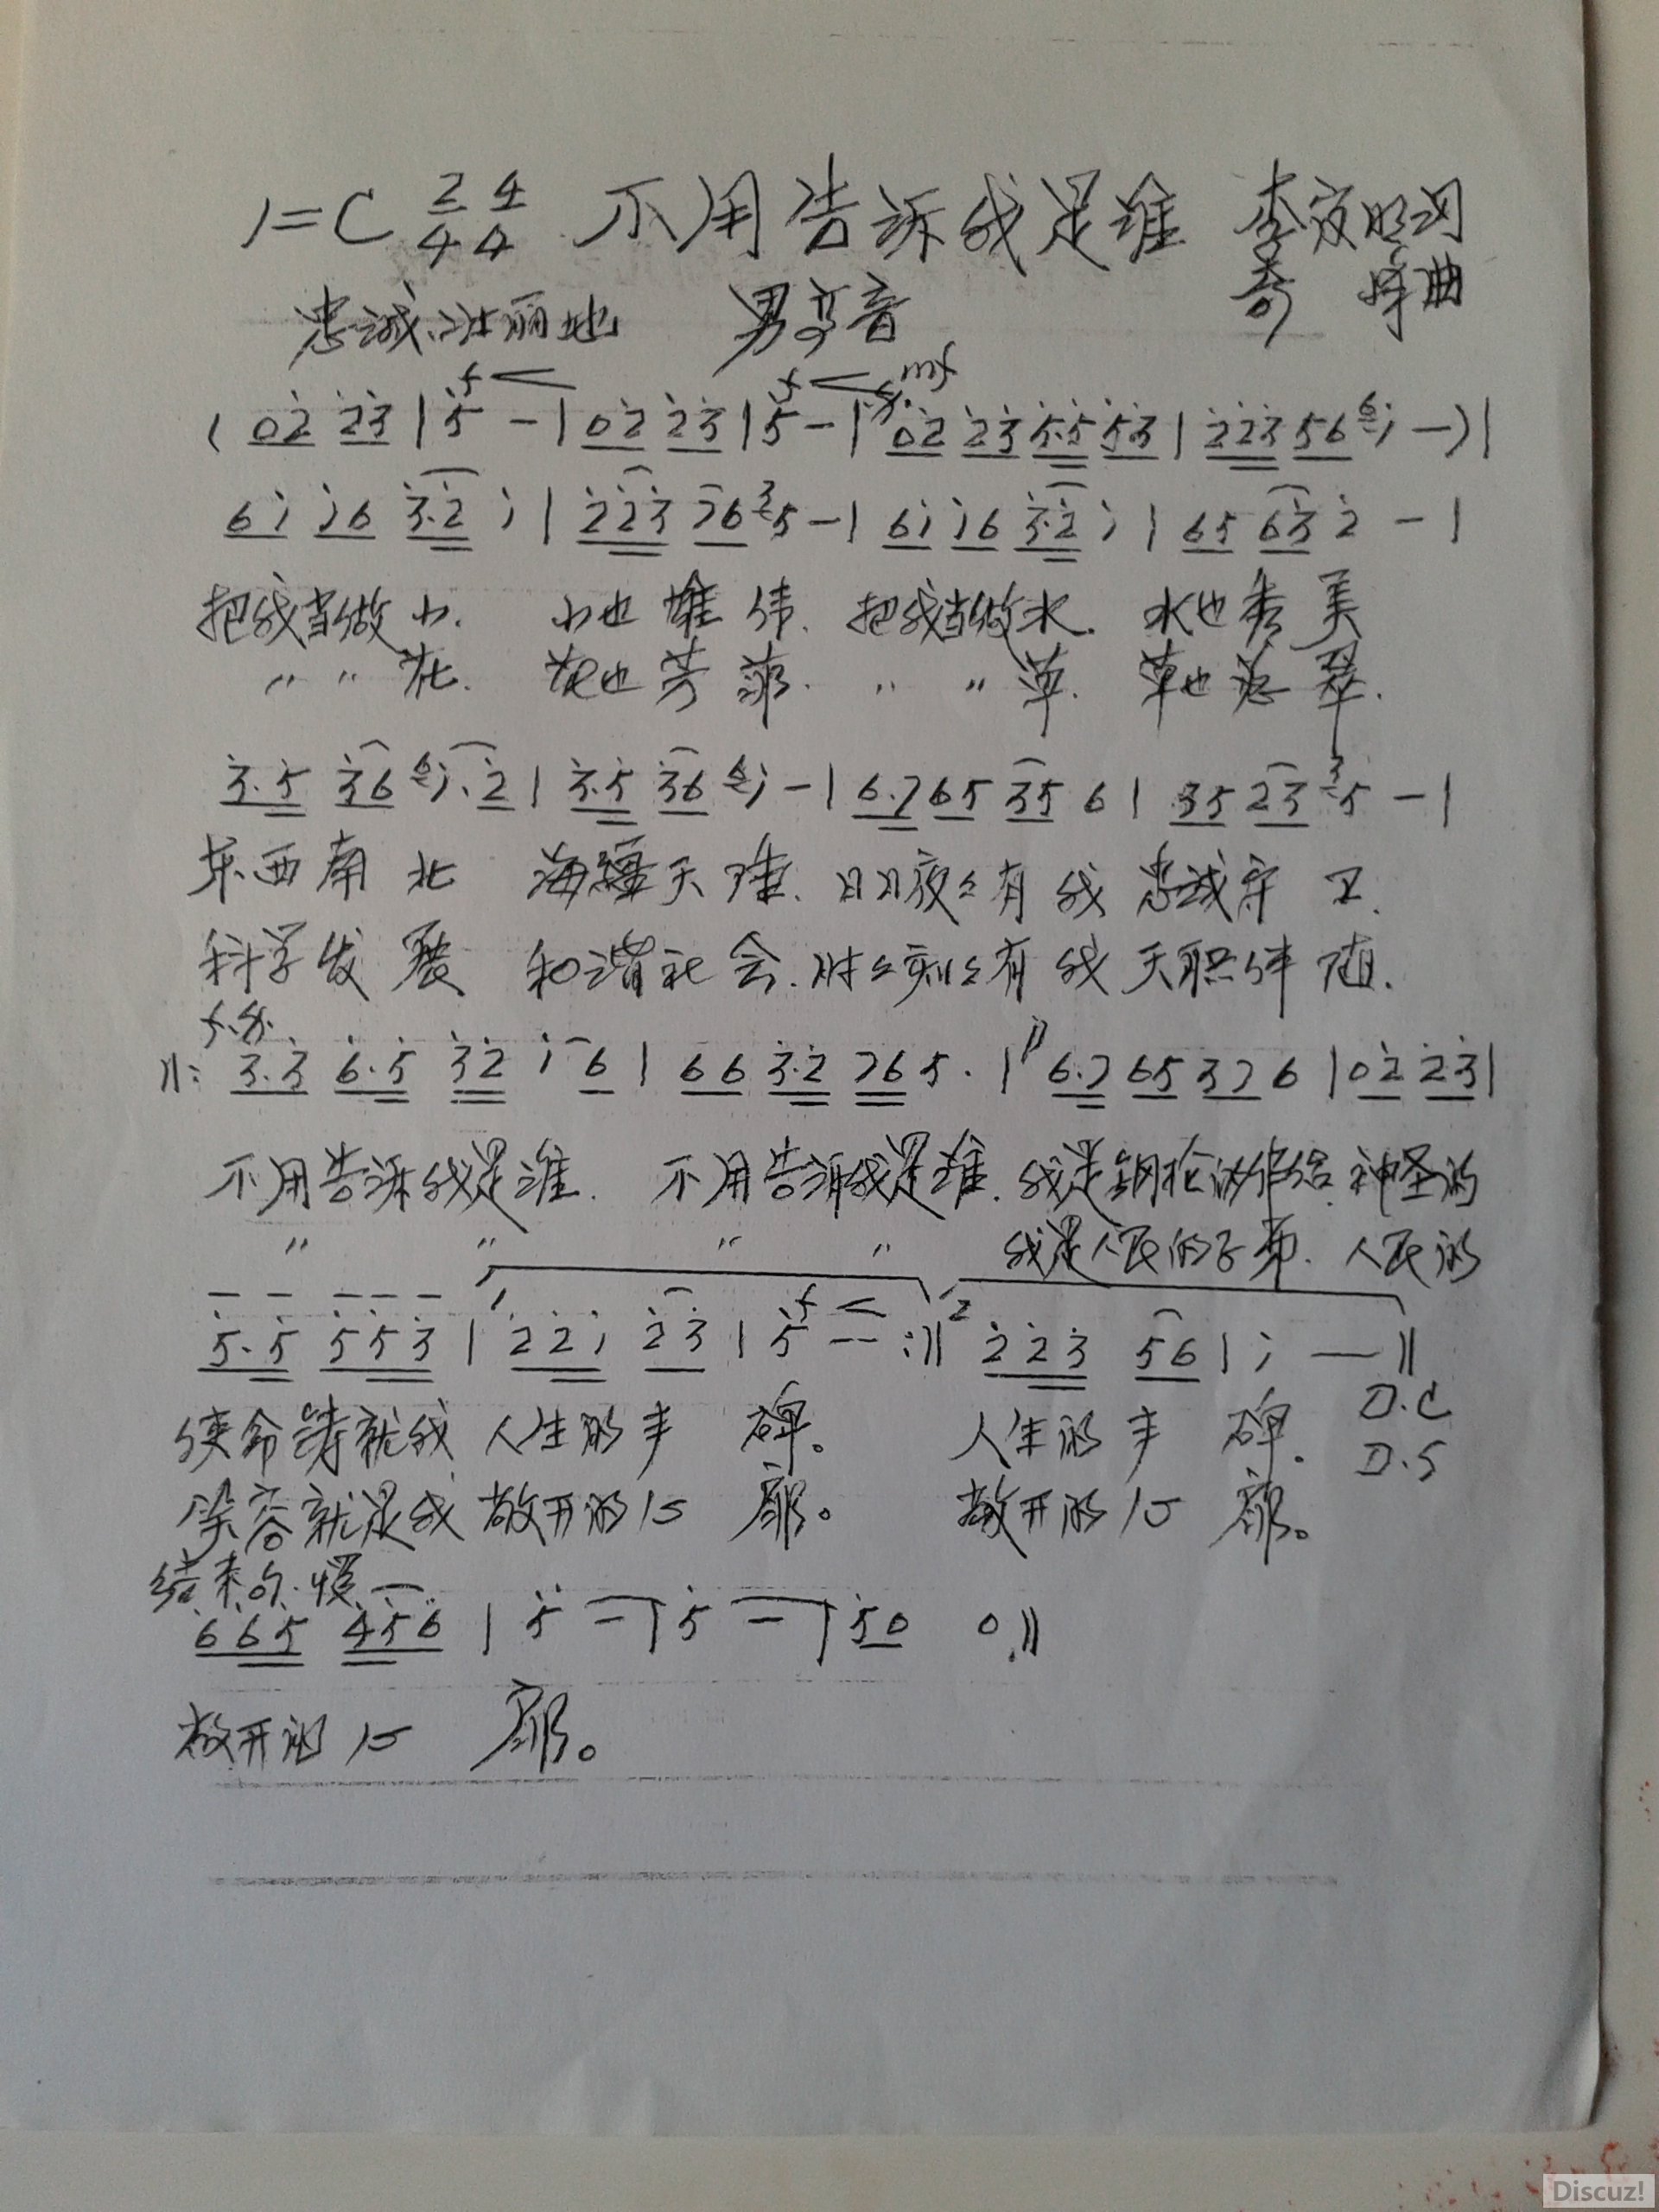 1=C 2/4 4/4 不用告诉我是谁 李夜明词
忠诚、壮丽地 男高音 奇峰曲
f f mf
( 02̇ 2̇3̇ | 5̇ - | 02̇ 2̇3̇ | 5̇ - | 02̇ 2̇3̇ 5̇.5̇ 5̇3̇ | 2̇2̇3̇ 56 1̇ - ) |
61̇ 1̇6 3̇.2̇ 1̇ | 2̇2̇3̇ 76 5 - | 61̇ 1̇6 3̇.2̇ 1̇ | 65 63̇ 2̇ - |
把我当做山. 山也雄伟. 把我当做水. 水也秀美
〃 〃 花. 花也芳菲. 〃 〃 草. 草也葱翠.
3̇.5̇ 3̇6 1̇.2̇ | 3̇.5̇ 3̇6 1̇ - | 6.7 65 35 6 | 35 23 5 - |
东西南北 海疆天陲. 日日夜夜有我忠诚守卫.
科学发展 和谐社会. 时时刻刻有我天职伴随.
‖: 3̇.3̇ 6.5̇ 3̇2̇ 1̇ 6 | 66 3̇.2̇ 76 5. | 6.7 65 37 6 | 02̇ 2̇3̇ |
不用告诉我是谁. 不用告诉我是谁. 我是钢枪的 神圣的
〃 〃 〃 〃 我是人民的子弟. 人民的
5̇.5̇ 5̇5̇3̇ | 2̇2̇1̇ 2̇3̇ | 5̇ -- :‖ 2̇2̇3̇ 56 | 1̇ — ‖
使命铸就我人生的丰碑。 人生的丰碑. D.C
笑容就是我敞开的心扉。 敞开的心扉。 D.S
结束句.慢
665 456 | 5 - | 5 - | 50 0 ‖
敞开的心扉。
Discuz!